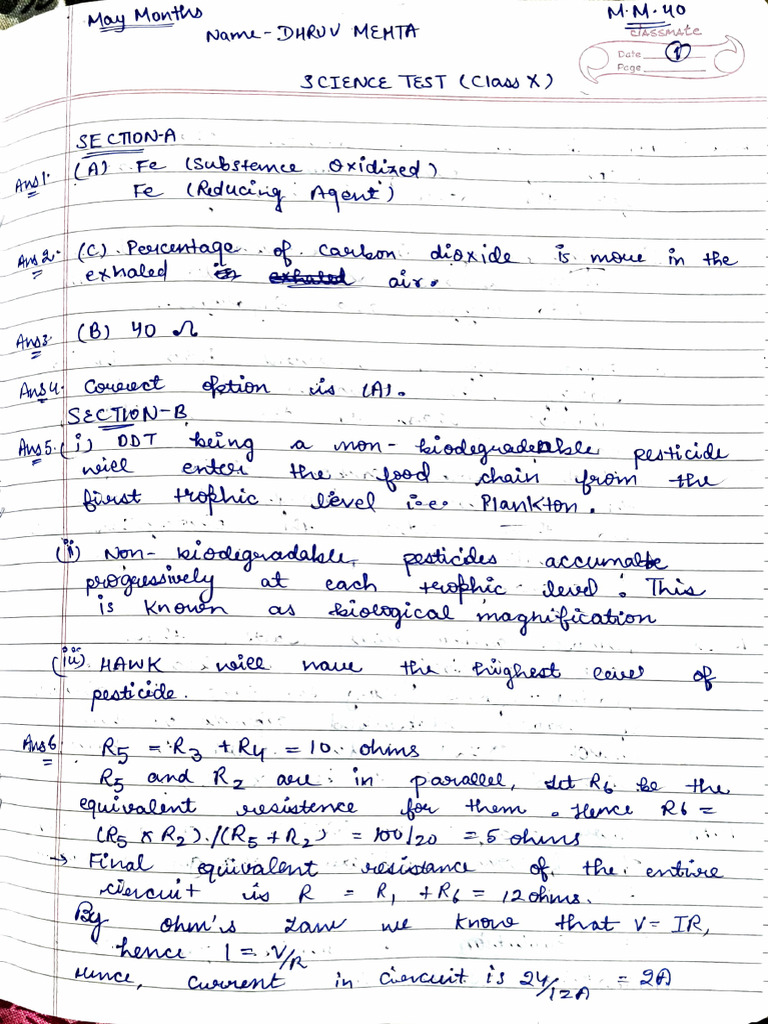 May Months
M.M.40
Name-DHRUV MEHTA
classmate
Date
Page
1
SCIENCE TEST (Class X)
SECTION-A
Ans1. (A) Fe (Substance Oxidized)
Fe (Reducing Agent)
Ans2. (C). Percentage of carbon dioxide is more in the
exhaled air.
Ans3. (B) 40 Ω
Ans4. Correct option is (A).
SECTION-B
Ans5. (i) DDT being a non-biodegradable pesticide
will enter the food chain from the
first trophic level i.e. Plankton.
(ii) Non-biodegradable pesticides accumalte
progressively at each trophic level. This
is known as biological magnification
(iii) HAWK will have the highest level of
pesticide.
Ans6 R5 = R3 + R4 = 10 ohms
R5 and R2 are in parallel, let R6 be the
equivalent resistence for them. Hence R6 =
(R5 x R2)/(R5 + R2) = 100/20 = 5 ohms
→ Final equivalent resistance of the entire
circuit is R = R1 + R6 = 12 ohms.
By ohm's Law we know that V = IR,
hence I = V/R
Hence, current in circuit is 24/12A = 2A